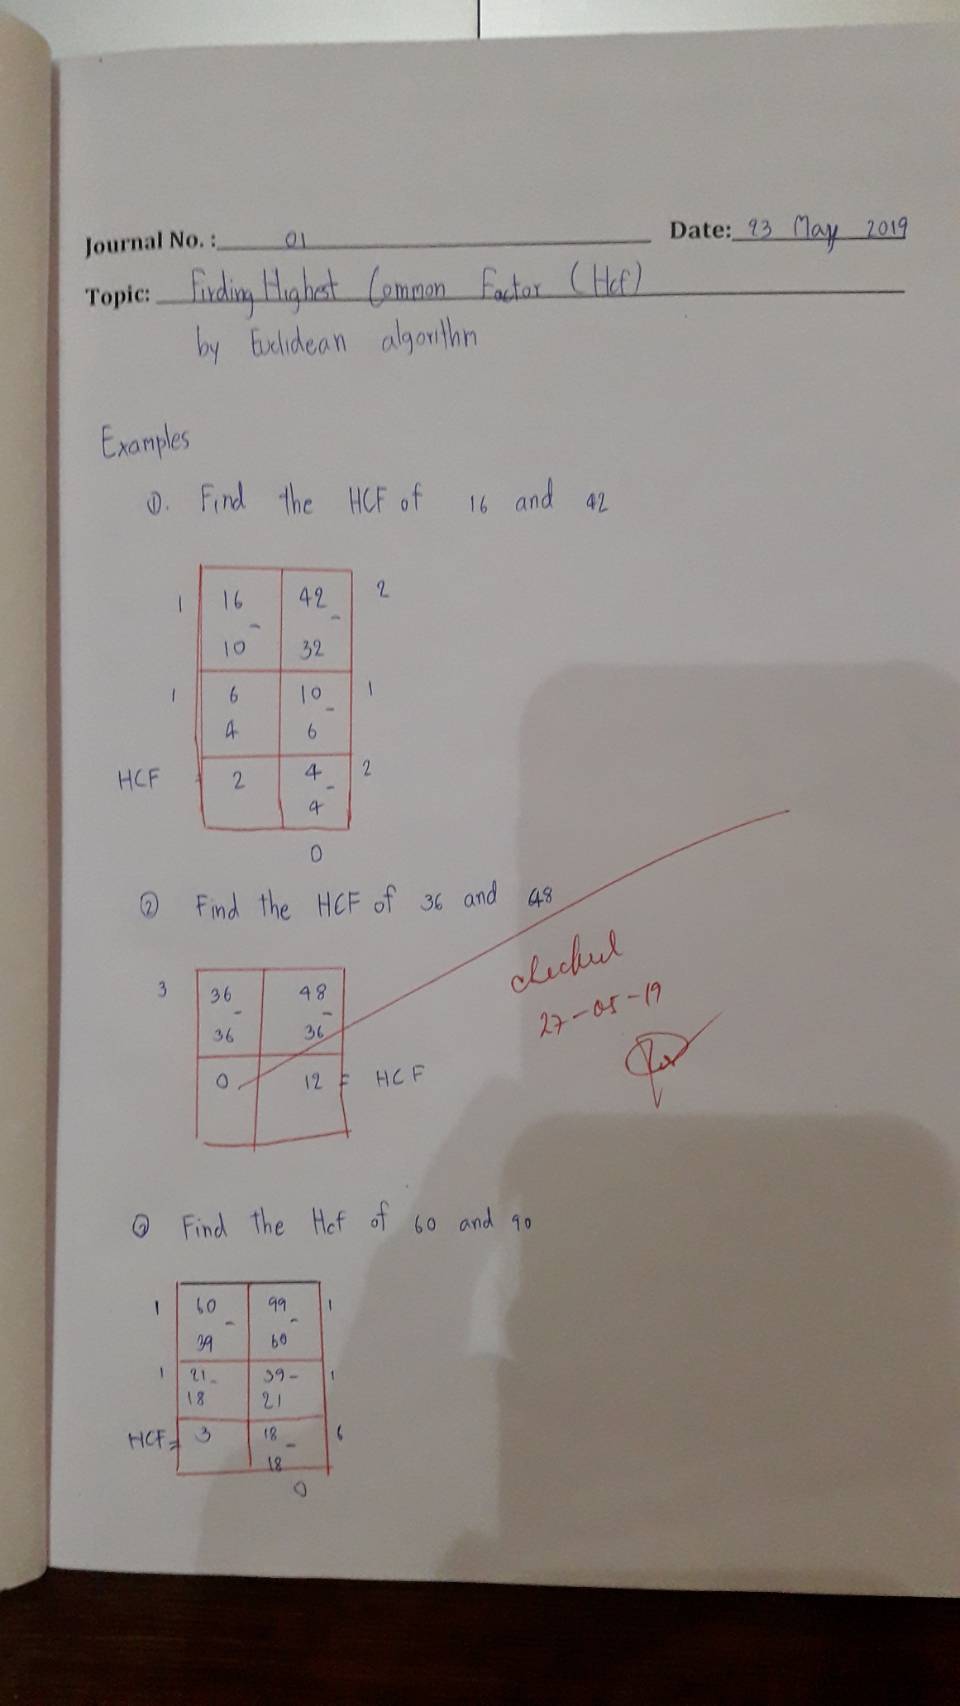 Journal No. : 01 Date: 23 May 2019
Topic: Finding Highest Common Factor (Hcf)
by Euclidean algorithm
Examples
①. Find the HCF of 16 and 42
1 16 42 2
- -
10 32
1 6 10 1
-
4 6
HCF 2 4 2
-
4
0
② Find the HCF of 36 and 48
checked
27-05-19
3 36 48
- -
36 36
0 12 = HCF
③ Find the Hcf of 60 and 90
1 60 99 1
- -
39 60
1 21- 39- 1
18 21
HCF= 3 18 6
-
18
0